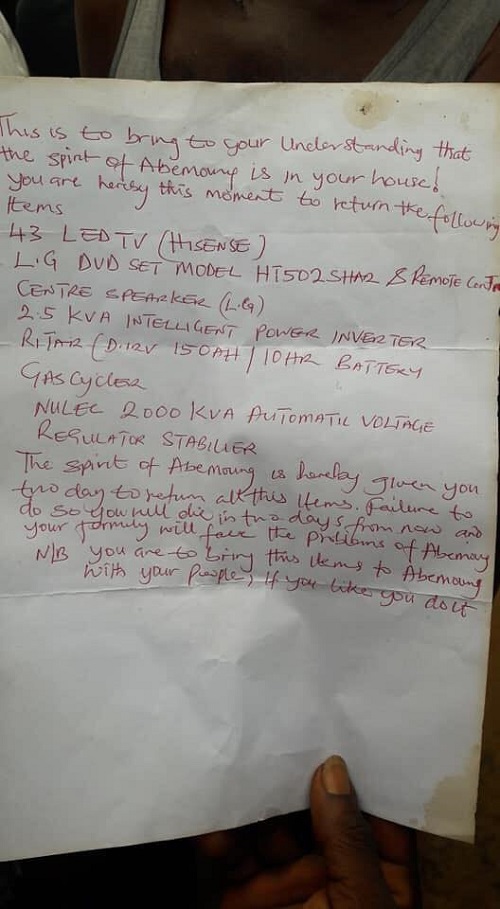 This is to bring to your Understanding that
the spirit of Abemoung is in your house!
You are hereby this moment to return the following
Items
43 LED TV (HISENSE)
L.G DVD SET MODEL HT502SHA2 & Remote Contr
CENTRE SPEARKER (L.G)
2.5 KVA INTELLIGENT POWER INVERTER
RITAR (D.12V 150AH / 10HR BATTERY
GAS Cycler
NULEC 2000 KVA AUTOMATIC VOLTAGE
REGULATOR STABILIER
The Spirit of Abemoung is hereby given you
two day to return all this Items. Failure to
do so you will die in two days from now and
your formily will face the problems of Abemoung
N/B you are to bring this items to Abemoung
with your People, If you like you do it